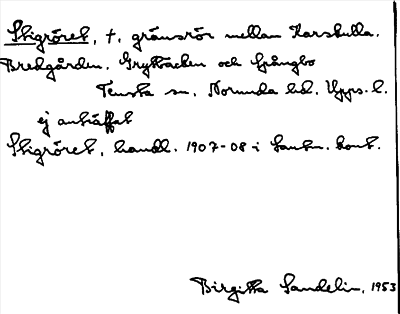 Stigröret, +, gränsrör mellan Karskulla.
Bredgården. Gryttbacken och Grångbo
Tensta sn, Norunda hd. Upps. l.
ej anträffat
Stigröret, handl. 1907-08 i Lantm. kont.
Birgitta Sandelin, 1953